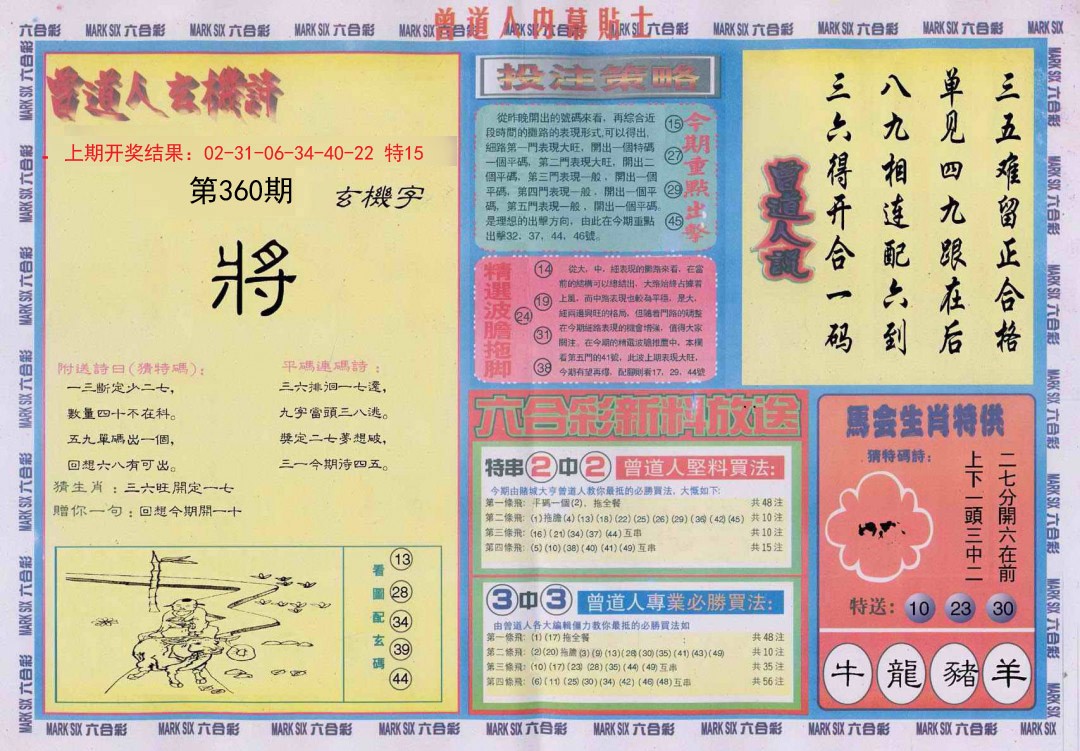 曾道人内幕貼士
MARK SIX 六合彩
曾道人玄機詩
上期开奖结果：02-31-06-34-40-22 特15
第360期
玄機字
將
附送詩曰(猜特碼)：
一三斷定少二七，
數量四十不在科。
五九單碼出一個，
回想六八有可出。
平碼連碼詩：
三六排徊一七邊，
九字當頭三八逃。
獎定二七夢想破，
三一今期待四五。
猜生肖：三六旺開定一七
贈你一句：回想今期開一十
看圖配玄碼
13
28
34
39
44
投注策略
從昨晚開出的號碼來看，再綜合近
段時間的攤路的表現形式，可以得出，
細路第一門表現大旺，開出一個特碼
一個平碼，第二門表現大旺，開出二
個平碼，第三門表現一般，開出一個
平碼，第四門表現一般，開出一個平
碼，第五門表現一般，開出一個平碼
是理想的出擊方向，由此在今期重點
出擊32、37、44、46號。
15
27
29
45
今期重點出擊
精選波膽拖脚
14
19
24
31
38
從大、中、細表現的攤路來看，在當
前的結構可以總結出，大路始終占據着
上風，而中路表現也較為平穩，是大、
細兩邊興旺的格局，但隨着門路的調整
在今期細路表現的機會增強，值得大家
關注，在今期的精選波膽推薦中，本欄
看第五門的41號，此波上期表現大旺，
今期有望再爆，配腳則看17、29、44號
三五难留正合格
单见四九跟在后
八九相连配六到
三六得开合一码
曾道人説
六合彩新料放送
特串2中2 曾道人堅料買法：
今期由賭城大亨曾道人教你最抵的必勝買法，大慨如下：
第一條飛：平碼一個(2)，拖全餐 共48注
第二條飛：(1)拖膽(4)(13)(18)(22)(25)(26)(29)(36)(42)(45) 共10注
第三條飛：(16)(21)(34)(37)(44)互串 共10注
第四條飛：(5)(10)(38)(40)(41)(49)互串 共15注
3中3 曾道人專業必勝買法：
由曾道人各大編輯傾力教你最抵的必勝買法如
第一條飛：(1)(17)拖全餐 共48注
第二條飛：(2)(20)拖膽(3)(9)(13)(28)(30)(35)(41)(43)(49) 共10注
第三條飛：(10)(17)(23)(28)(35)(44)(49)互串 共35注
第四條飛：(6)(11)(25)(30)(34)(42)(46)(48)互串 共56注
馬会生肖特供
猜特碼詩：
二七分開六在前
上下一頭三中二
特送：10 23 30
牛 龍 豬 羊